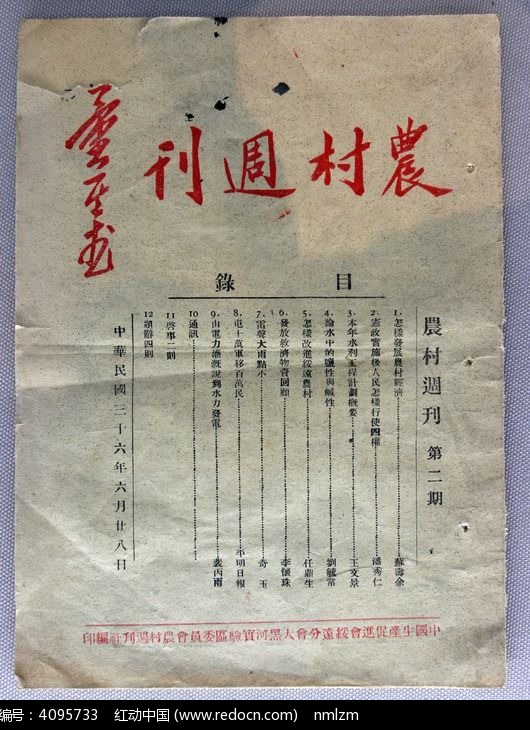 農村週刊
目錄
農村週刊 第二期
1.怎樣發展農村經濟 蘇壽余
2.憲政實施後人民怎樣行使四權 潘秀仁
3.本年水利工程計劃概要 王文景
4.論水中的鹽性與鹹性 劉毓常
5.怎樣改進綏遠農村 任鼎生
6.發放救濟物資回顧 李懷珠
7.雷聲大雨點小 奇玉
8.屯十萬軍移百萬民 平明日報
9.由電力灌漑說到水力發電 裴丙雨
10通訊
11啓事二則
12題辭四則
中華民國三十六年六月廿八日
中國生產促進會綏遠分會大黑河實驗區委員會農村週刊社編印
编号：4095733 红动中国 (www.redocn.com) nmlzm